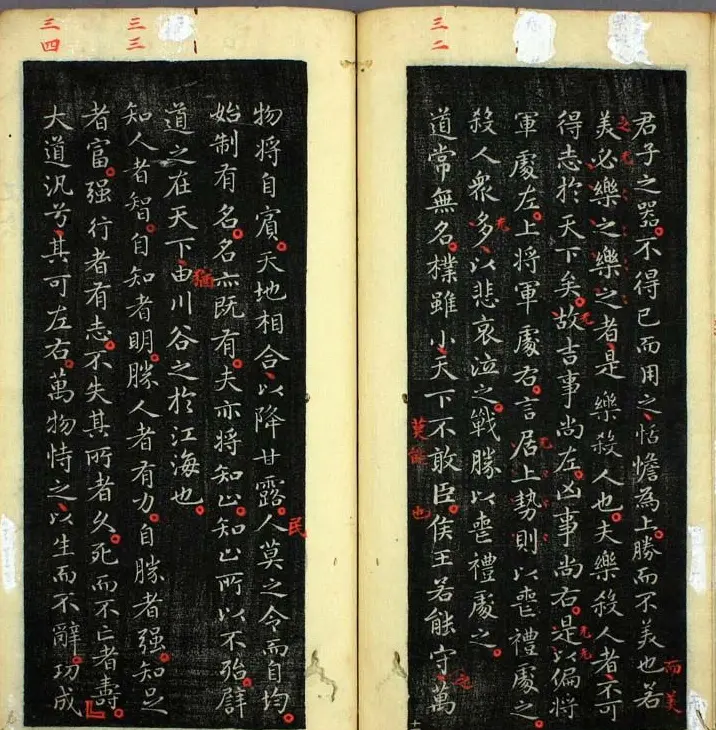 三二
君子之器。不得已而用之、恬憺為上。勝而不美也若
而美
美必樂之樂之者是樂殺人也。夫樂殺人者、不可
之
无
得志於天下矣。故吉事尚左。凶事尚右。是以偏將
无
无
无
軍處左。上將軍處右。言居上勢則以喪禮處之。
无
殺人衆多、以悲哀泣之。戰勝以喪禮處之。
无
道常無名。樸雖小、天下不敢臣。侯王若能守、萬
之
莫能
也
三三
三四
物將自賓。天地相合、以降甘露。人莫之令而自均。
民
始制有名。名亦既有。夫亦將知止。知止所以不殆。譬
道之在天下、由川谷之於江海也。
猶
知人者智。自知者明。勝人者有力。自勝者强。知足
者富。强行者有志。不失其所者久。死而不亡者壽。
大道汎兮、其可左右。萬物恃之、以生而不辭。功成